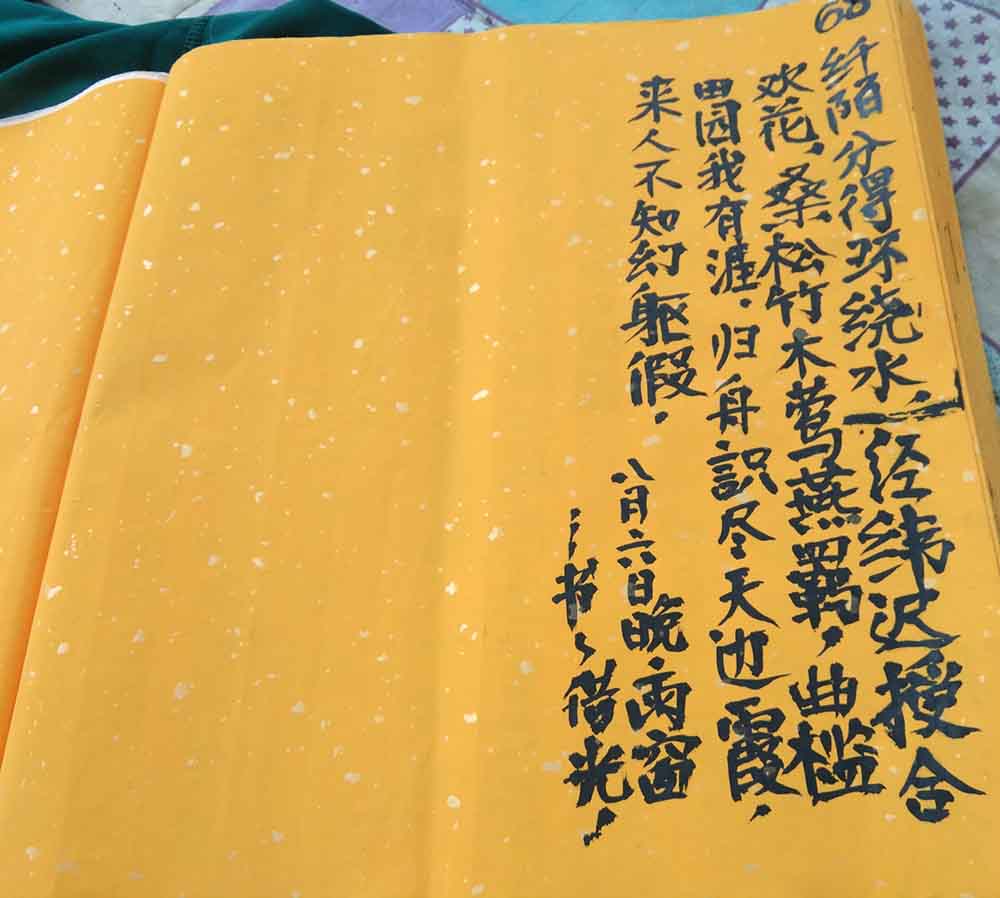 68
纤陌分得环绕水,经纬迟授合
欢花,桑松竹木莺燕羁,曲槛
田园我有涯,归舟識尽天边霞,
来人不知幻躯假。
八月六日晚雨窗
借光,